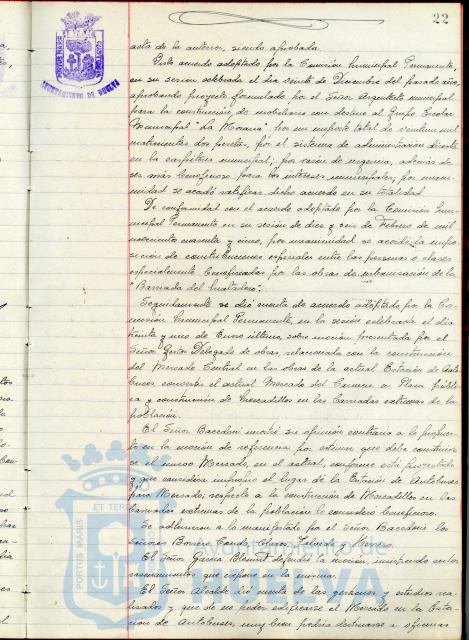 22
acta de la anterior, siendo aprobada.
Visto acuerdo adoptado por la Comisión Municipal Permanente,
en su sesión celebrada el día veinte de Diciembre del pasado año,
aprobando proyecto formulado por el Señor Arquitecto municipal
para la construcción de mobiliario con destino al Grupo Escolar
Municipal "La Morana" por un importe total de veintiun mil
cuatrocientas dos pesetas, por el sistema de administración directa
en la carpintería municipal; por razón de urgencia, además de
ser más beneficioso para los intereses municipales, por unani-
midad se acordó ratificar dicho acuerdo en su totalidad.
De conformidad con el acuerdo adoptado por la Comisión Mu-
nicipal Permanente en su sesión de diez y seis de Febrero de mil
novecientos cuarenta y cinco, por unanimidad se acordó la impo-
sición de contribuciones especiales entre las personas o clases
especialmente beneficiadas por las obras de urbanización de la
"Barriada del Matadero".
Seguidamente se dió cuenta de acuerdo adoptado por la Co-
misión Municipal Permanente, en la sesión celebrada el día
treinta y uno de Enero último, sobre moción presentada por el
Señor Gestor Delegado de obras, relacionada con la construcción
del Mercado Central en las obras de la actual Estación de Auto-
buses, convertir el actual Mercado del Carmen en Plaza públi-
ca y construcción de Mercadillos en las barriadas extremas de la
población.
El Señor Bacedoni mostró su opinión contraria a lo propues-
to en la moción de referencia por estimar que debe construir-
se el nuevo Mercado, en el actual, conforme está proyectado
y que considera impropio el lugar de la Estación de Autobuses
para Mercado; respecto a la construcción de Mercadillos en las
barriadas extremas de la población lo consideró beneficioso.
Se adhirieron a lo manifestado por el Señor Bacedoni los
Señores Borrero Conde, Claros, Zalvide y Mora.
El Señor García Blemart defendió la moción, insistiendo en los
razonamientos que expone en la misma.
El Señor Alcalde dió cuenta de las gestiones y estudios rea-
lizados y que de no poder edificarse el Mercado en la Esta-
ción de Autobuses, muy bien podría destinarse a oficinas
PORTUS MARIS
AYUNTAMIENTO DE HUELVA
ET TERRAE
PORTUS MARIS
Ayuntamiento de
HUELVA